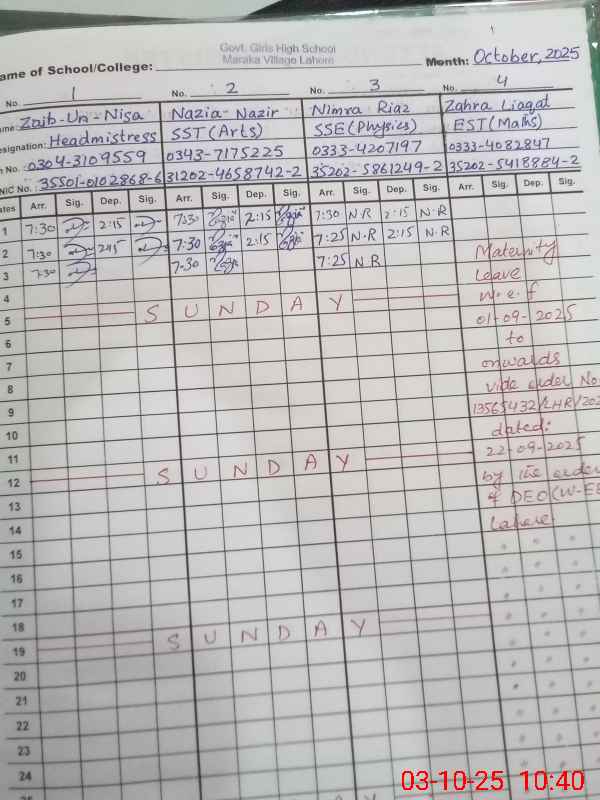 Govt. Girls High School
Maraka Village Lahore
ame of School/College:
Month: October, 2025
No. 1 No. 2 No. 3 No. 4
ame: Zaib-Un-Nisa Nazia Nazir Nimra Riaz Zahra Liaqat
esignation: Headmistress SST (Arts) SSE (Physics) EST (Maths)
n No.: 0304-3109559 0343-7175225 0333-4207197 0333-4082847
NIC No.: 35501-0102868-6 31202-4658742-2 35202-5861249-2 35202-5418884-2
ates Arr. Sig. Dep. Sig. Arr. Sig. Dep. Sig. Arr. Sig. Dep. Sig. Arr. Sig. Dep. Sig.
1 7:30 2:15 7:30 2:15 7:30 N.R 2:15 N.R
2 7:30 2:15 7:30 2:15 7:25 N.R 2:15 N.R
3 7:30 7:30 7:25 N.R
Maternity
leave
w.e.f
01-09-2025
to
onwards
vide order No
13565432/LHR/202
dated:
22-09-2025
by the order
of DEO (W-EE
Lahore
4
5 SUNDAY
6
7
8
9
10
11
12 SUNDAY
13
14
15
16
17
18
19 SUNDAY
20
21
22
23
24
03-10-25 10:40